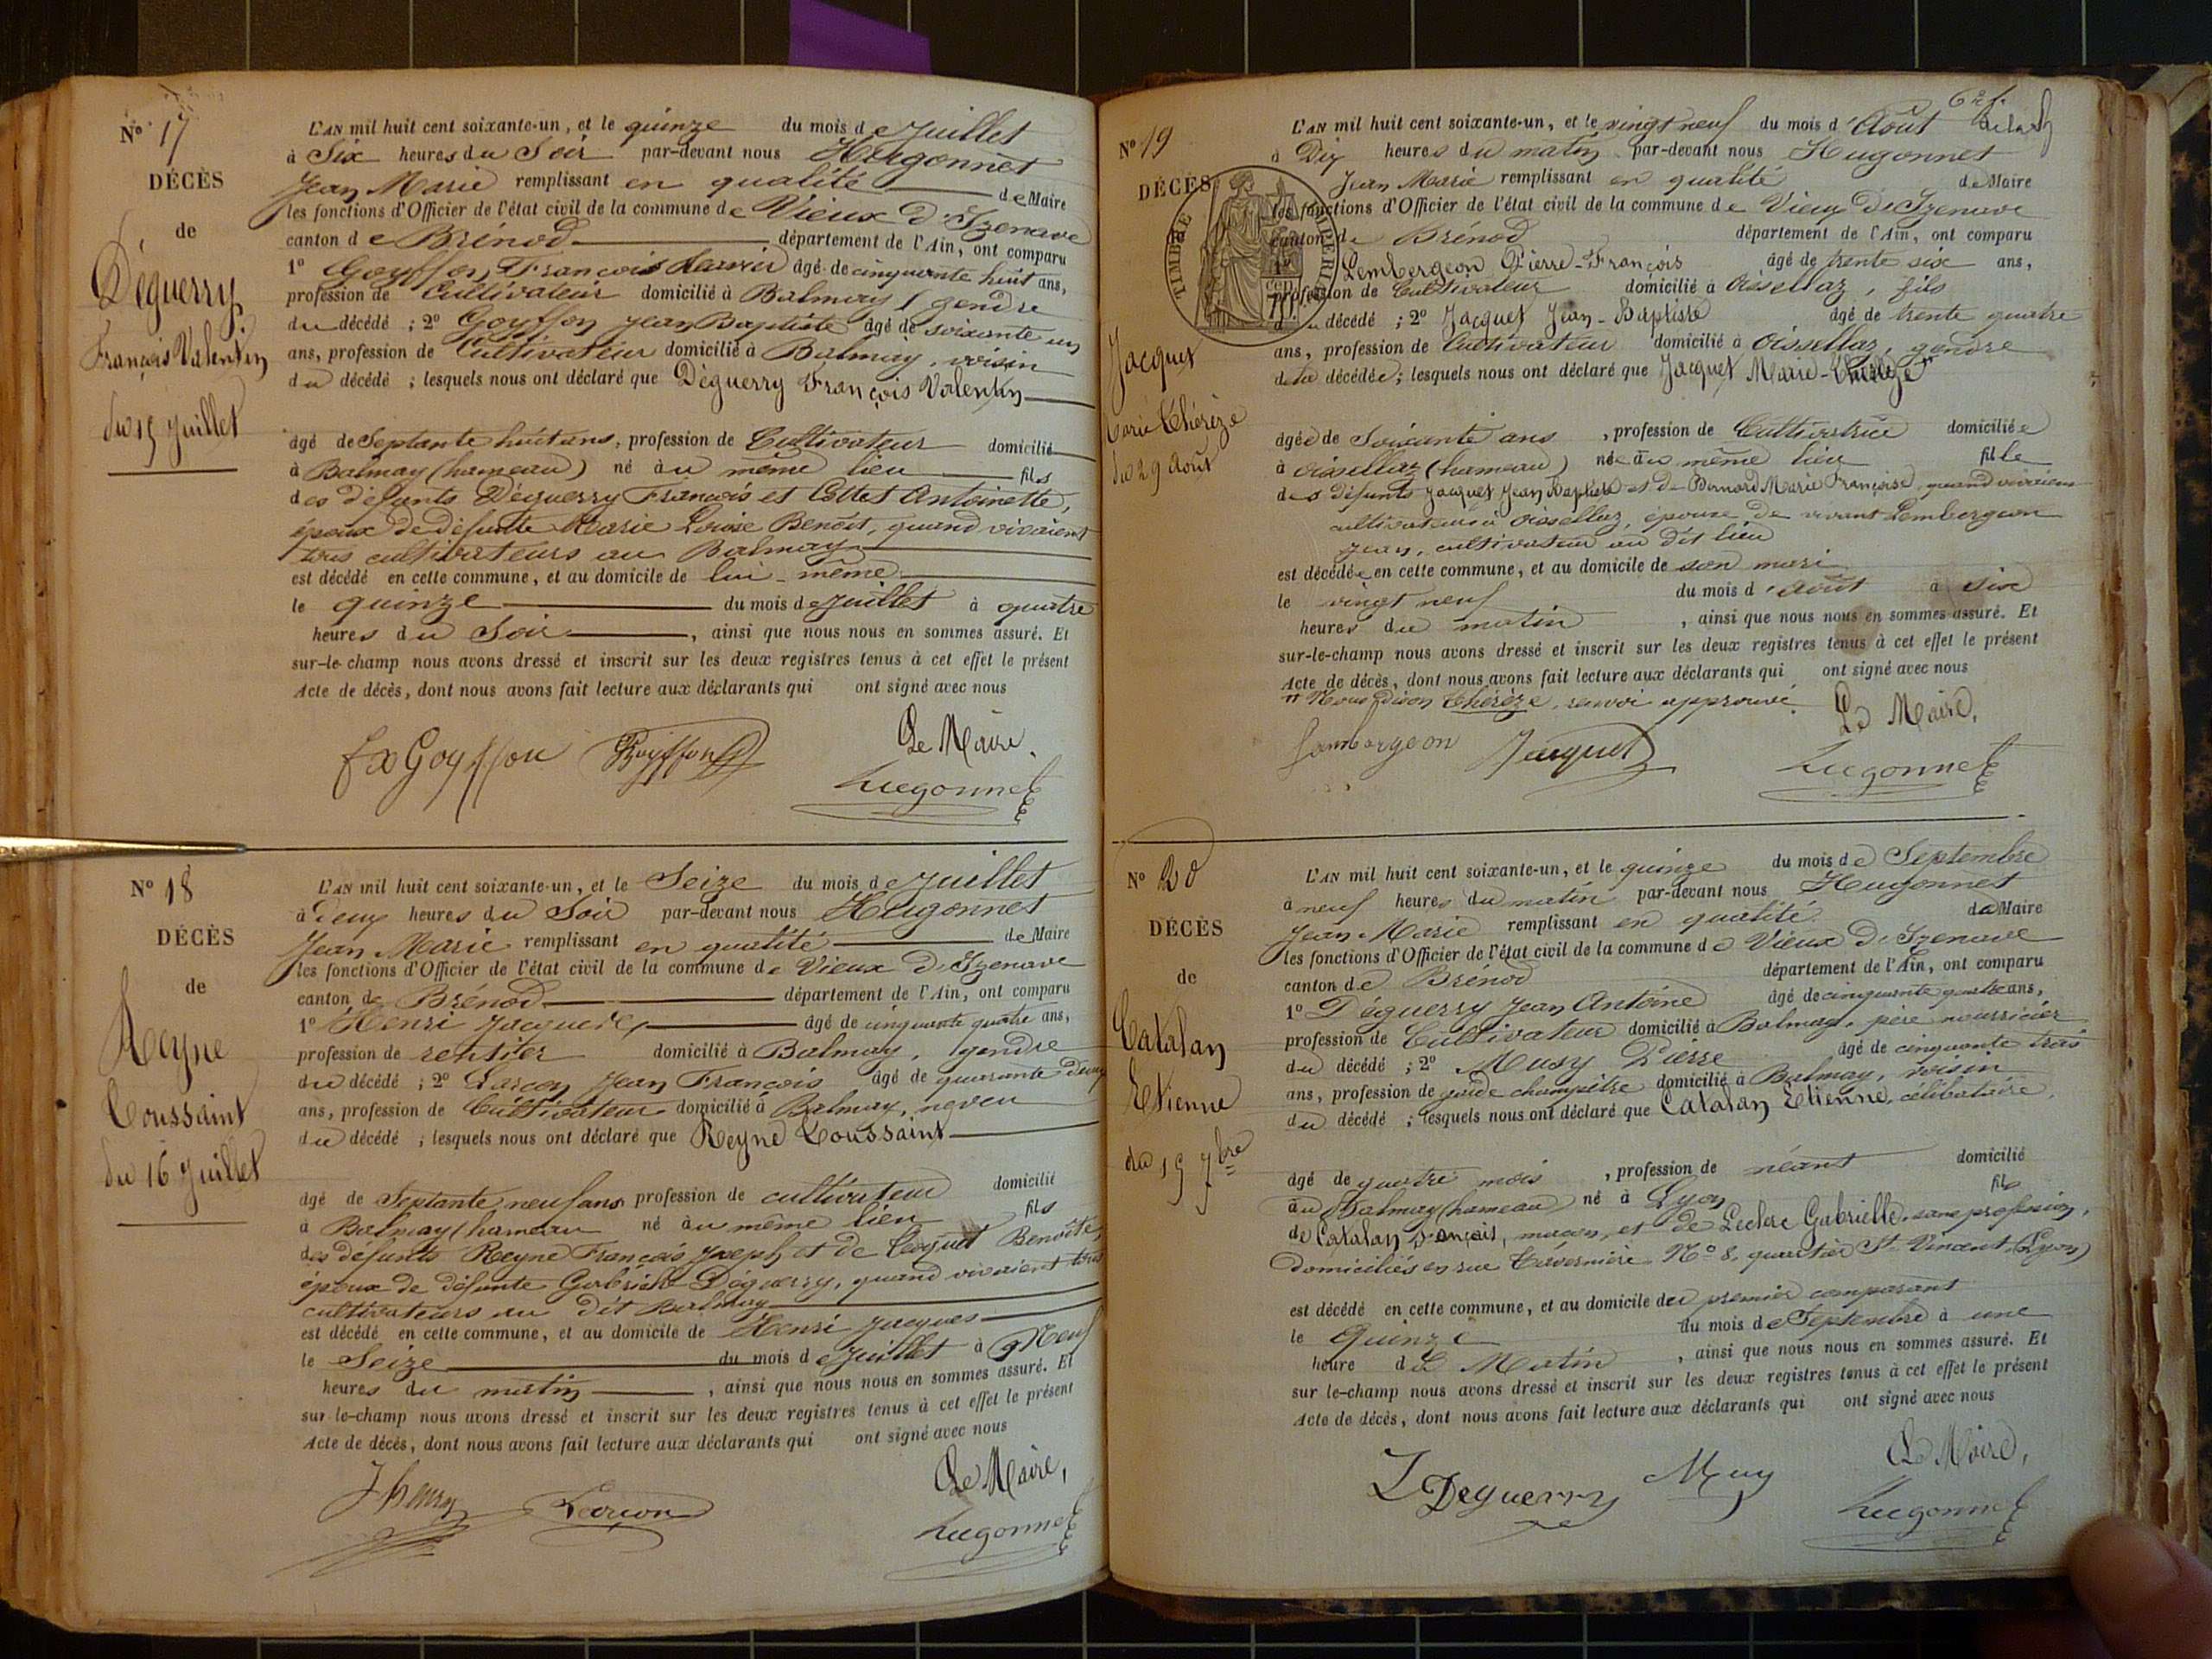 Nº 17
DÉCÈS
de
Déguerry
François Valentin
du 15 Juillet
L'AN mil huit cent soixante-un, et le quinze du mois de Juillet
à Six heures du Soir par-devant nous Hugonnet
Jean Marie remplissant en qualité de Maire
les fonctions d'Officier de l'état civil de la commune de Vieux D'Izenave
canton de Brénod département de l'Ain, ont comparu
1º Goyffon François Xavier âgé de cinquante huit ans,
profession de Cultivateur domicilié à Balmay, gendre
du décédé ; 2º Goyffon Jean Baptiste âgé de soixante un
ans, profession de Cultivateur domicilié à Balmay, voisin
du décédé ; lesquels nous ont déclaré que Déguerry François Valentin
âgé de Septante huit ans, profession de Cultivateur domicilié
à Balmay (hameau) né au même lieu fils
des défunts Déguerry François et Cottet Antoinette,
époux de défunte Marie Louise Benoit, quand vivaient
tous cultivateurs au Balmay
est décédé en cette commune, et au domicile de lui-même
le quinze du mois de Juillet à quatre
heures du Soir, ainsi que nous nous en sommes assuré. Et
sur-le-champ nous avons dressé et inscrit sur les deux registres tenus à cet effet le présent
Acte de décès, dont nous avons fait lecture aux déclarants qui ont signé avec nous
Le Maire.
fx Goyffon Goyffon Hugonnet
Nº 18
DÉCÈS
de
Reyne
Toussaint
du 16 Juillet
L'AN mil huit cent soixante-un, et le Seize du mois de Juillet
à deux heures du Soir par-devant nous Hugonnet
Jean Marie remplissant en qualité de Maire
les fonctions d'Officier de l'état civil de la commune de Vieux D'Izenave
canton de Brénod département de l'Ain, ont comparu
1º Henri Jacques, âgé de cinquante quatre ans,
profession de rentier domicilié à Balmay, gendre
du décédé ; 2º Larçon Jean François âgé de quarante deux
ans, profession de Cultivateur domicilié à Balmay, neveu
du décédé ; lesquels nous ont déclaré que Reyne Toussaint
âgé de Septante neuf ans profession de cultivateur domicilié
à Balmay (hameau né au même lieu fils
des défunts Reyne François Joseph et de Benoîte,
époux de défunte Gabrielle Déguerry, quand vivaient tous
cultivateurs au dit Balmay
est décédé en cette commune, et au domicile de Henri Jacques
le Seize du mois de Juillet à Neuf
heures du matin, ainsi que nous nous en sommes assuré. Et
sur-le-champ nous avons dressé et inscrit sur les deux registres tenus à cet effet le présent
Acte de décès, dont nous avons fait lecture aux déclarants qui ont signé avec nous
Le Maire,
J henry Larcon Hugonnet
Nº 19
DÉCÈS
TIMBRE IMPÉRIAL
Jacquet
Marie Thérèze
du 29 Août
L'AN mil huit cent soixante-un, et le vingt neuf du mois d'Août
à Dix heures du matin par-devant nous Hugonnet
Jean Marie remplissant en qualité de Maire
les fonctions d'Officier de l'état civil de la commune de Vieux D'Izenave
canton de Brénod département de l'Ain, ont comparu
1º Lembergeon Pierre-François âgé de trente six ans,
profession de Cultivateur domicilié à Oisellaz, fils
du décédé ; 2º Jacquet Jean-Baptiste âgé de trente quatre
ans, profession de Cultivateur domicilié à Oissellaz, gendre
de la décédée ; lesquels nous ont déclaré que Jacquet Marie-
âgée de Soixante ans, profession de Cultivatrice domiciliée
à Oissellaz (hameau) née au même lieu fille
des défunts Jacquet Jean Baptiste et de Bernard Marie Françoise, quand vivaient
cultivateurs à Oissellaz, épouse de vivant Lembergeon
Jean, cultivateur au dit lieu
est décédée en cette commune, et au domicile de son mari
le vingt neuf du mois d'août à six
heures du matin, ainsi que nous nous en sommes assuré. Et
sur-le-champ nous avons dressé et inscrit sur les deux registres tenus à cet effet le présent
Acte de décès, dont nous avons fait lecture aux déclarants qui ont signé avec nous
Nous disons Thérèze, renvoi approuvé.
Le Maire,
Lambergeon Jacquet Hugonnet
Nº 20
DÉCÈS
de
Catalan
Etienne
du 15 7bre
L'AN mil huit cent soixante-un, et le quinze du mois de Septembre
à neuf heures du matin par-devant nous Hugonnet
Jean-Marie remplissant en qualité de Maire
les fonctions d'Officier de l'état civil de la commune de Vieux D'Izenave
canton de Brénod département de l'Ain, ont comparu
1º Déguerry Jean Antoine âgé de cinquante quatre ans,
profession de Cultivateur domicilié à Balmay, père nourricier
du décédé ; 2º Musy Pierre âgé de cinquante trois
ans, profession de garde champêtre domicilié à Balmay, voisin
du décédé ; lesquels nous ont déclaré que Catalan Etienne, célibataire,
âgé de quatre mois, profession de néant domicilié
au Balmay (hameau) né à Lyon fils
de Catalan François, maçon, et de Leclere Gabrielle, sans profession,
domiciliés en rue Nº 8, quartier St Vincent (Lyon)
est décédé en cette commune, et au domicile du premier comparant
le Quinze du mois de Septembre à une
heure du Matin, ainsi que nous nous en sommes assuré. Et
sur le-champ nous avons dressé et inscrit sur les deux registres tenus à cet effet le présent
Acte de décès, dont nous avons fait lecture aux déclarants qui ont signé avec nous
Le Maire,
Deguerry Hugonnet